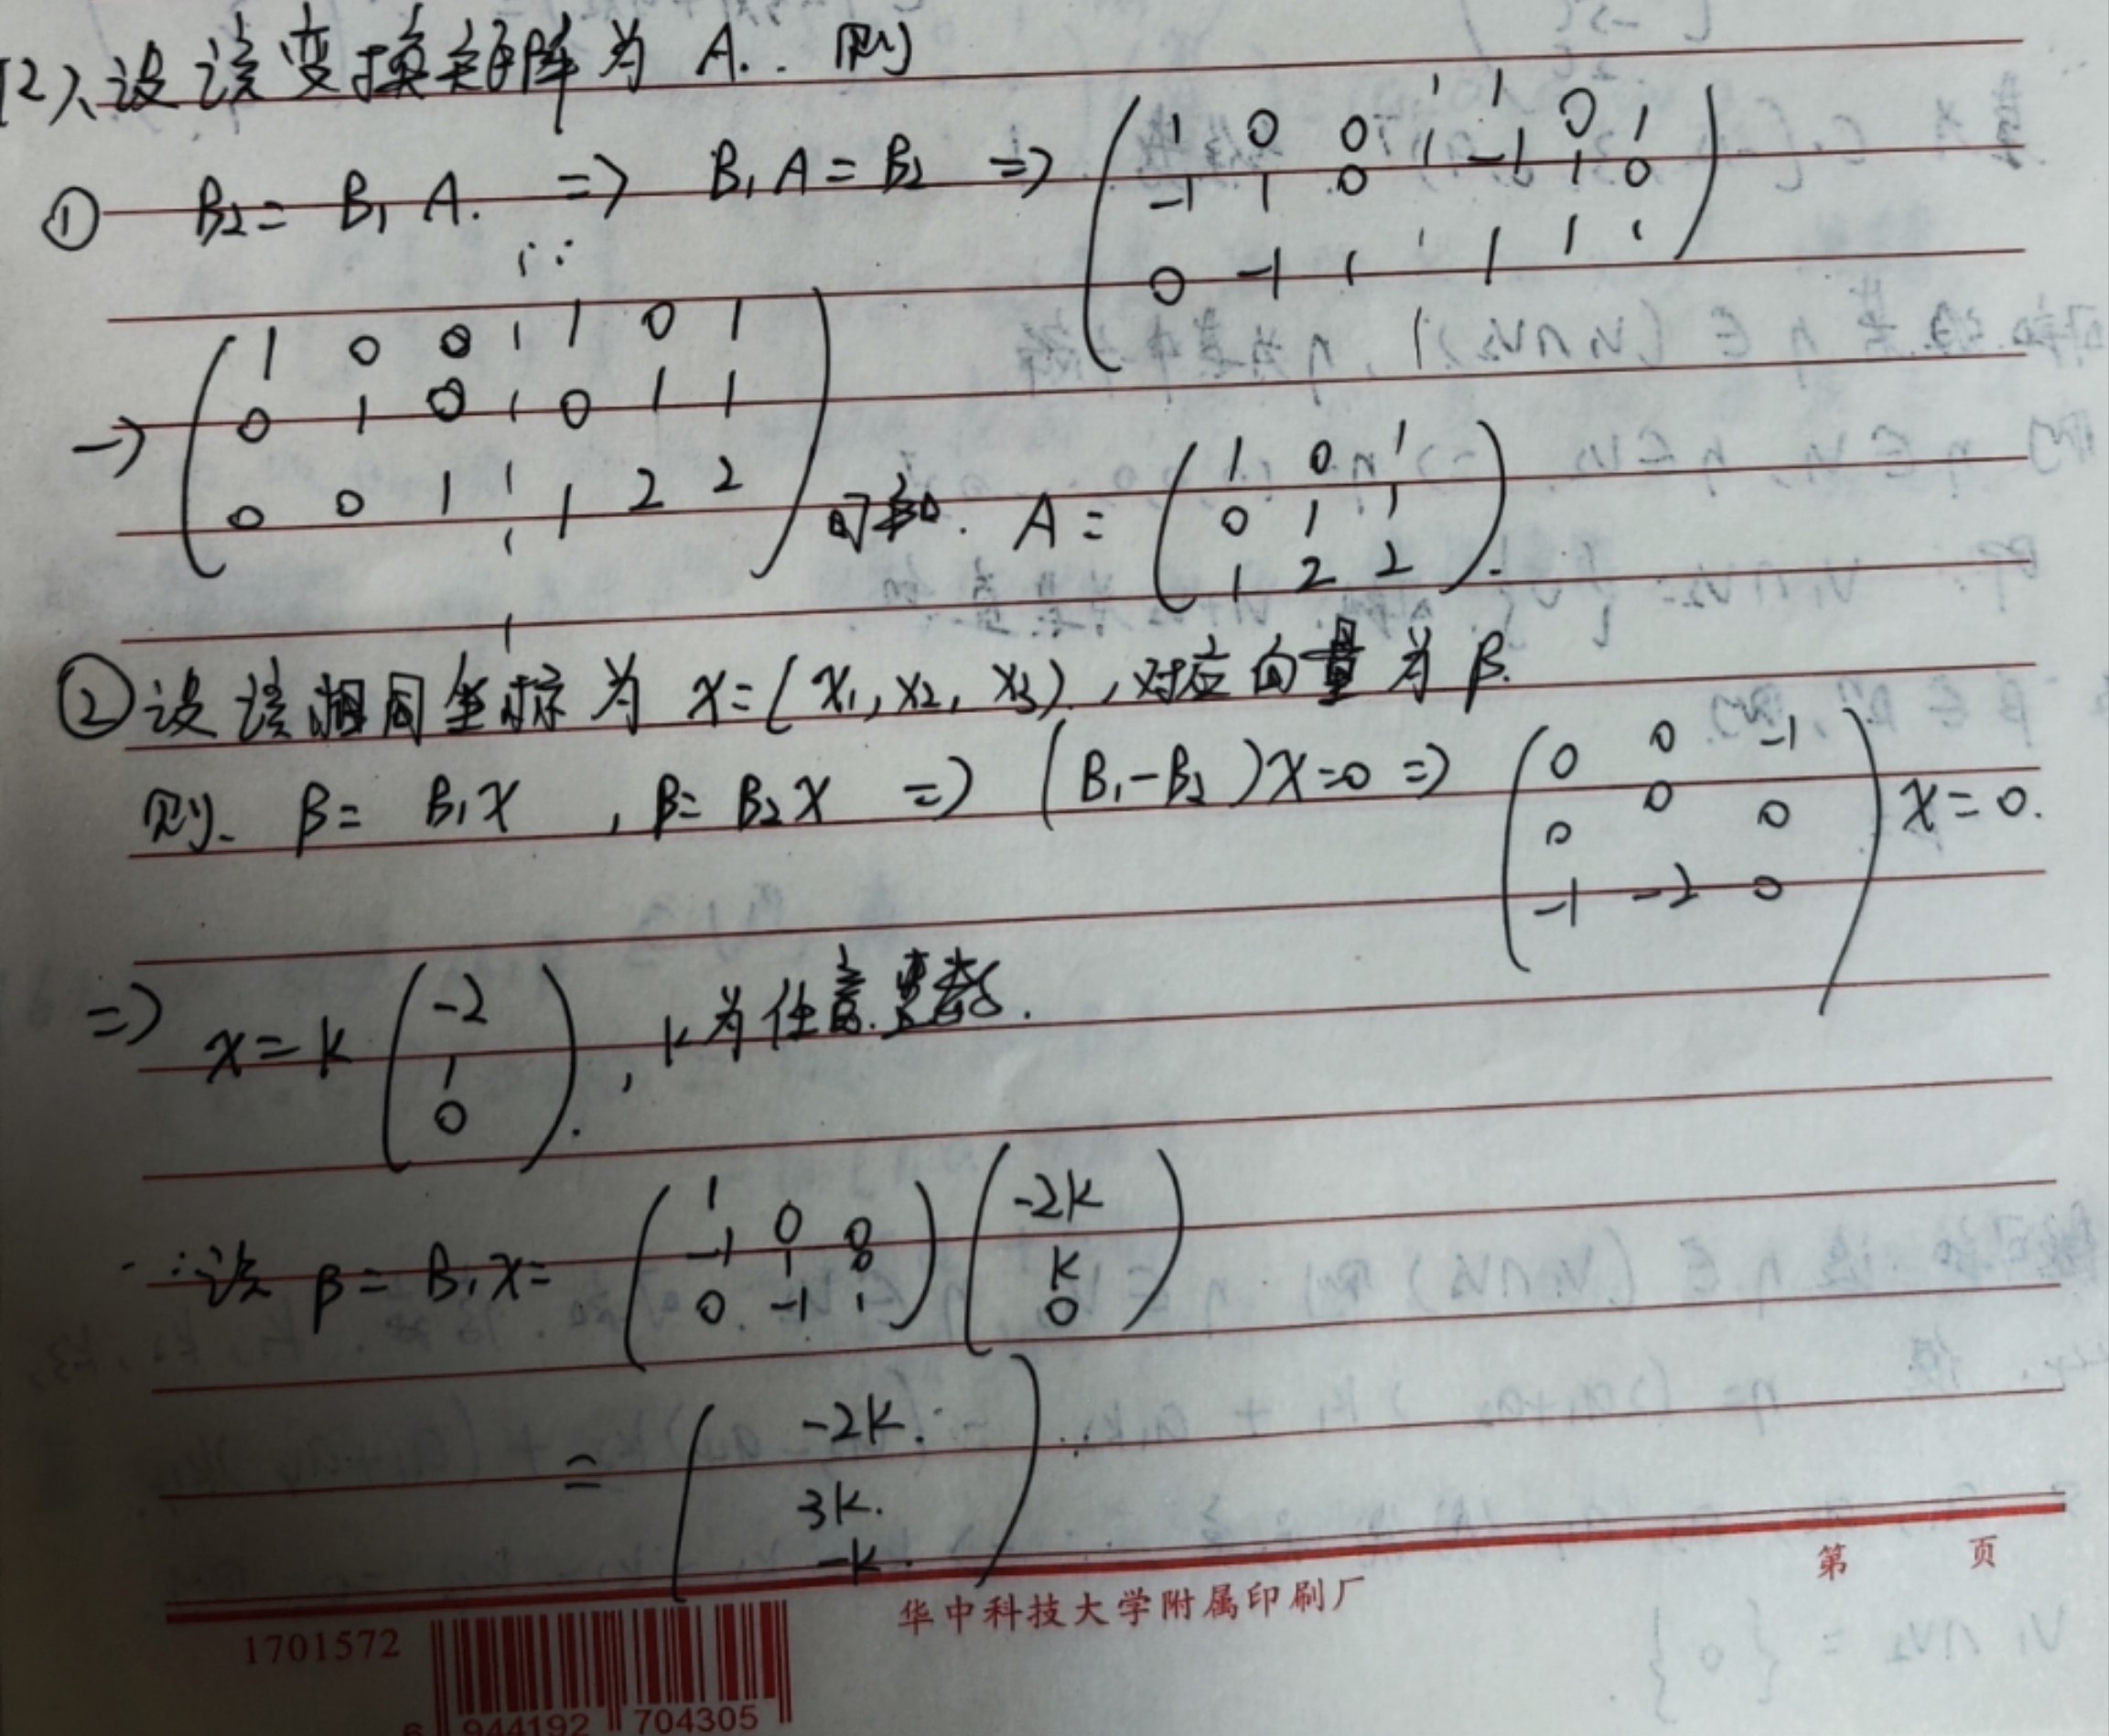 (2)、设该变换矩阵为 A. 则
① B₂ = B₁ A. ⇒ B₁ A = B₂ ⇒ ( 1 0 0 1 0 1
-1 1 0 -1 1 0
0 -1 1 1 1 1 )
→ ( 1 0 0 1 0 1
0 1 0 0 1 1
0 0 1 1 2 2 ) 可知. A = ( 1 0 1
0 1 1
1 2 2 ).
② 设该相同坐标为 x=(x₁, x₂, x₃), 对应向量为 β.
则. β = B₁x , β = B₂x ⇒ (B₁-B₂)x=0 ⇒ ( 0 0 -1
0 0 0
-1 -2 0 ) x = 0.
⇒ x = k ( -2
1
0 ). , k为任意实数.
∴ 该 β = B₁x = ( 1 0 0
-1 1 0
0 -1 1 ) ( -2k
k
0 )
= ( -2k.
3k.
-k. )
第 页
华中科技大学附属印刷厂
1701572
6 944192 704305